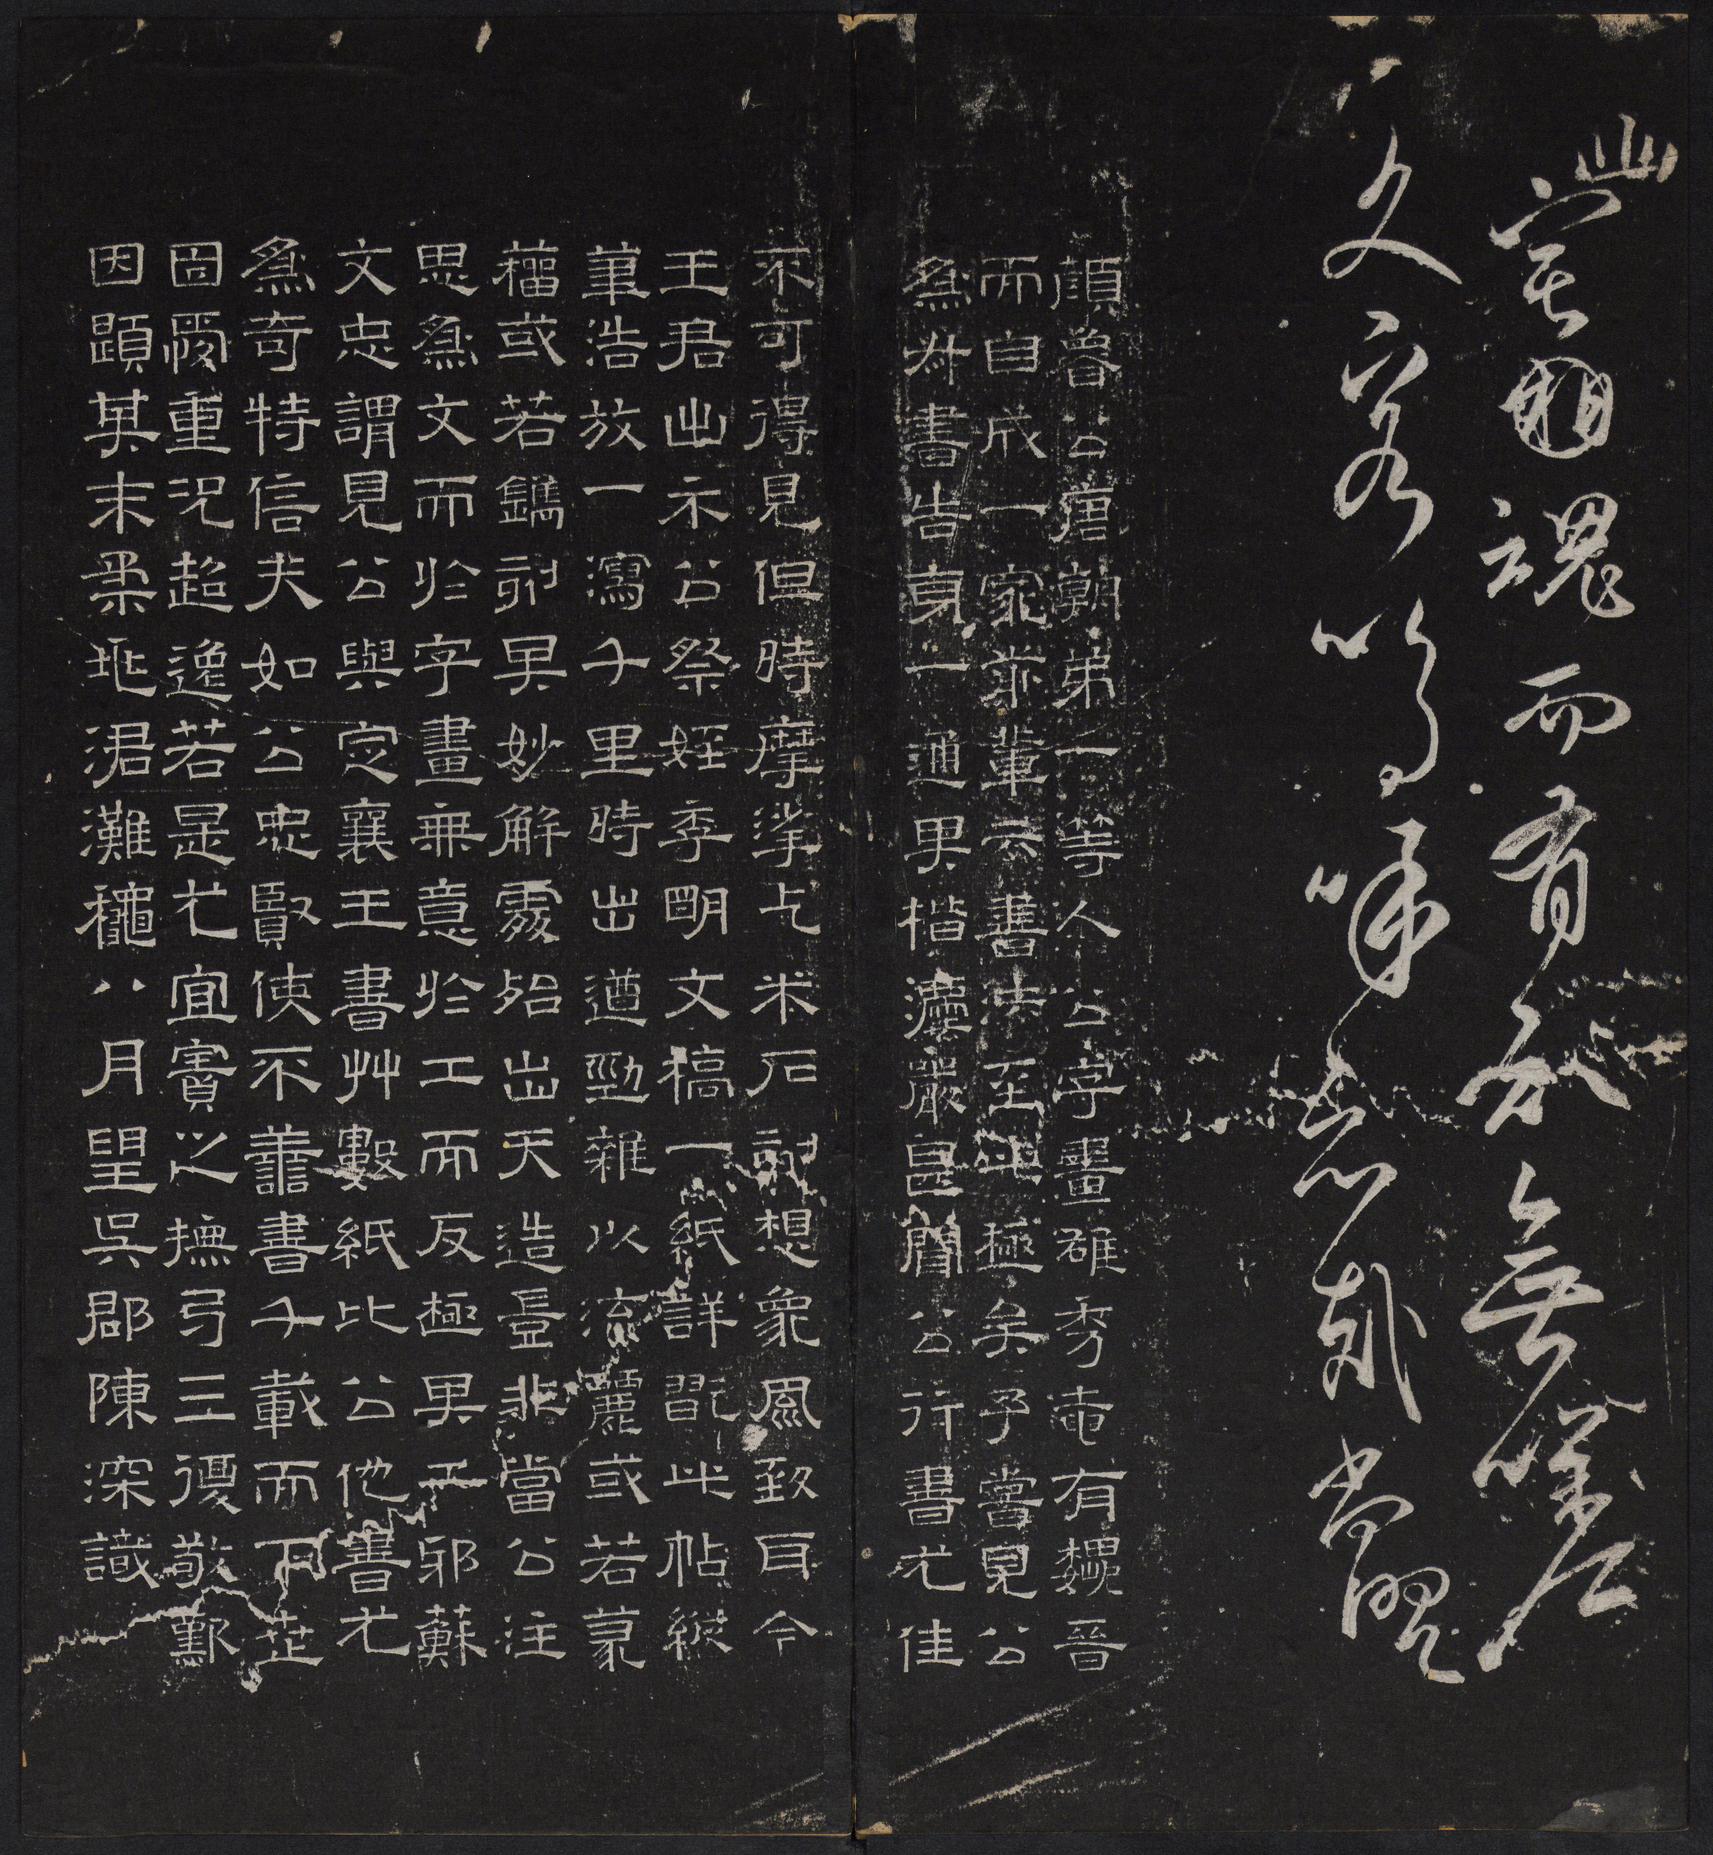 幽宅相魂而有知無嗟
久客嗚呼哀哉尚饗
顏魯公唐朝弟一等人公字畫雄秀奄有魏晉
而自成一家前輩云書法至此極矣予嘗見公
為書告身一通其楷灋嚴甚聞公行書尤佳
不可得見但時摩挲木石刻想象風致耳今
王君出示公祭姪季明文稿一紙詳翫此帖縱
筆浩放一瀉千里時出遒勁雜以流麗或若篆
籀或若鐫刻其妙解處殆出天造豈非當公注
思為文而於字畫無意於工而反極其工邪蘇
文忠謂見公與定襄王書艸數紙比公他書尤
為奇特信夫如公忠賢使不善書千載而下世
固愛重況超逸若是尤宜寶之撫弓三復敬歎
因題其末柔兆涒灘穐八月望吳郡陳深識